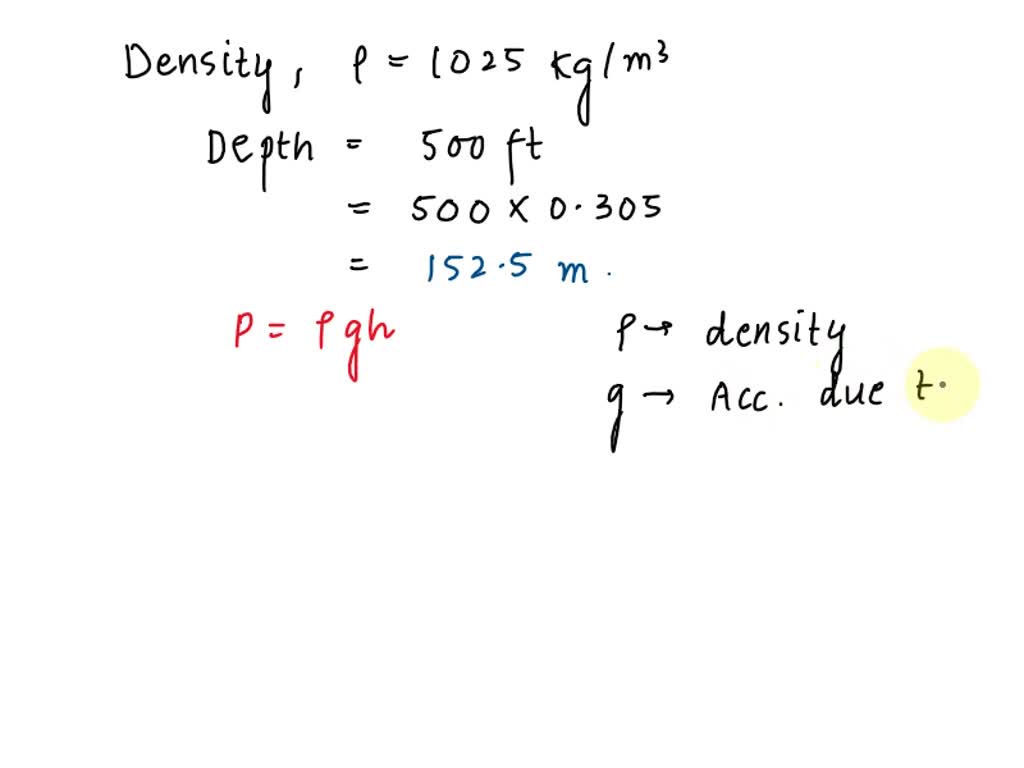 Density, ρ = 1025 kg/m³
Depth = 500 ft
= 500 × 0.305
= 152.5 m.
P = ρgh
ρ → density
g → Acc. due t.